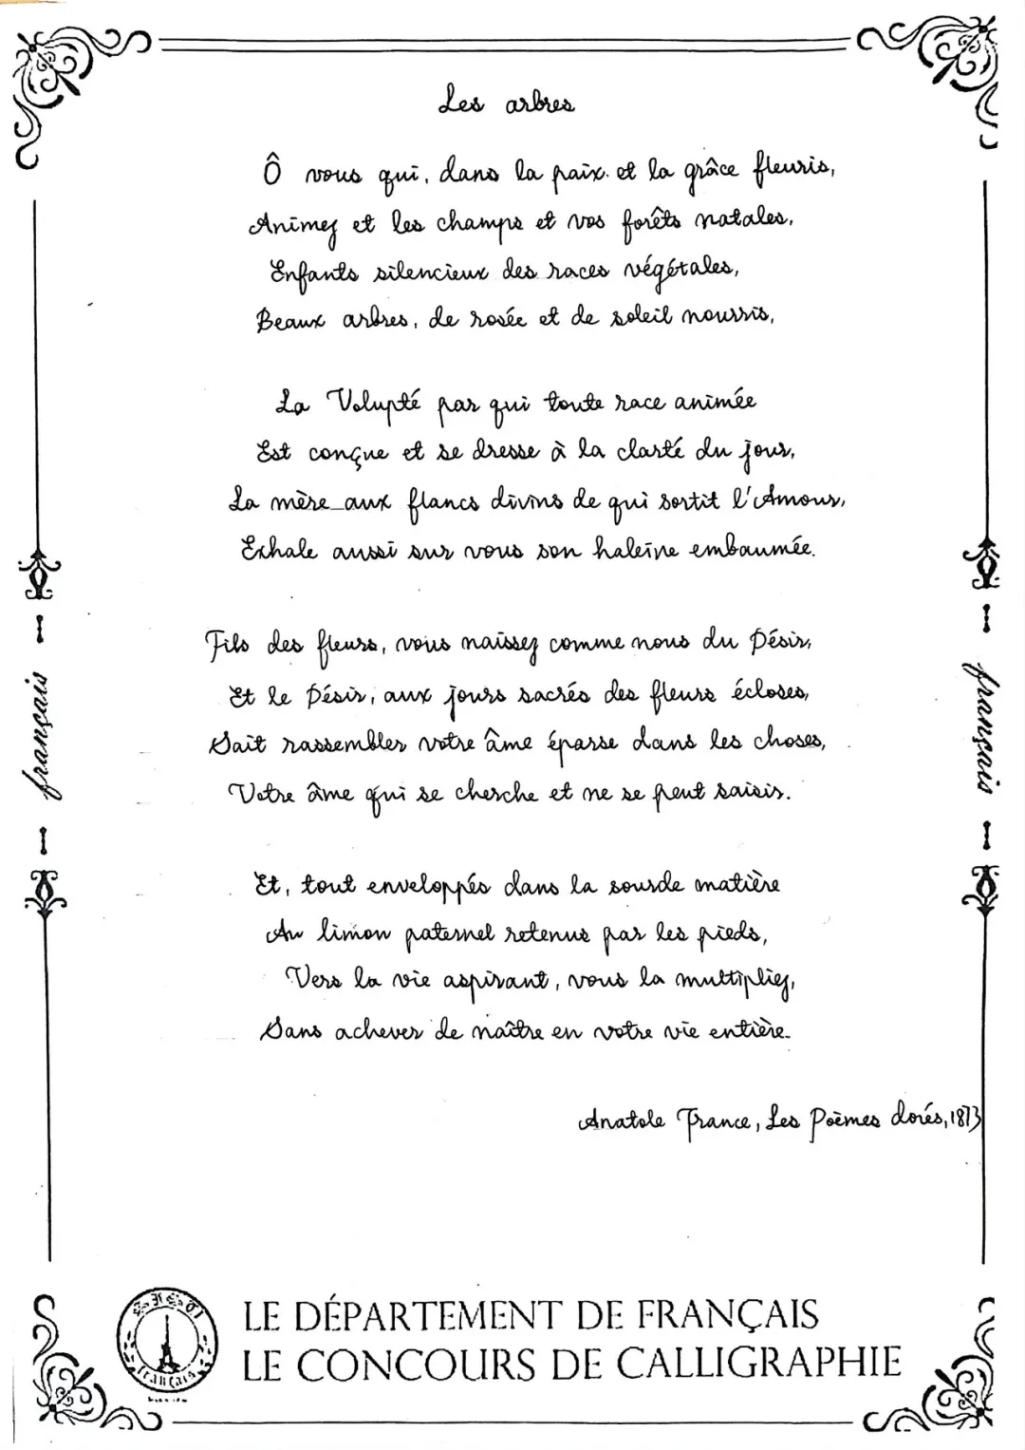 Les arbres
Ô vous qui, dans la paix et la grâce fleuris,
Animez et les champs et vos forêts natales,
Enfants silencieux des races végétales,
Beaux arbres, de rosée et de soleil nourris,
La Volupté par qui toute race animée
Est conçue et se dresse à la clarté du jour,
La mère aux flancs divins de qui sortit l'Amour,
Exhale aussi sur vous son haleine embaumée.
Fils des fleurs, vous naissez comme nous du Désir,
Et le Désir, aux jours sacrés des fleurs écloses,
Sait rassembler votre âme éparse dans les choses,
Votre âme qui se cherche et ne se peut saisir.
Et, tout enveloppés dans la sourde matière
Au limon paternel retenus par les pieds,
Vers la vie aspirant, vous la multipliez,
Sans achever de naître en votre vie entière.
Anatole France, Les Poèmes dorés, 1873
français
français
français
LE DÉPARTEMENT DE FRANÇAIS
LE CONCOURS DE CALLIGRAPHIE